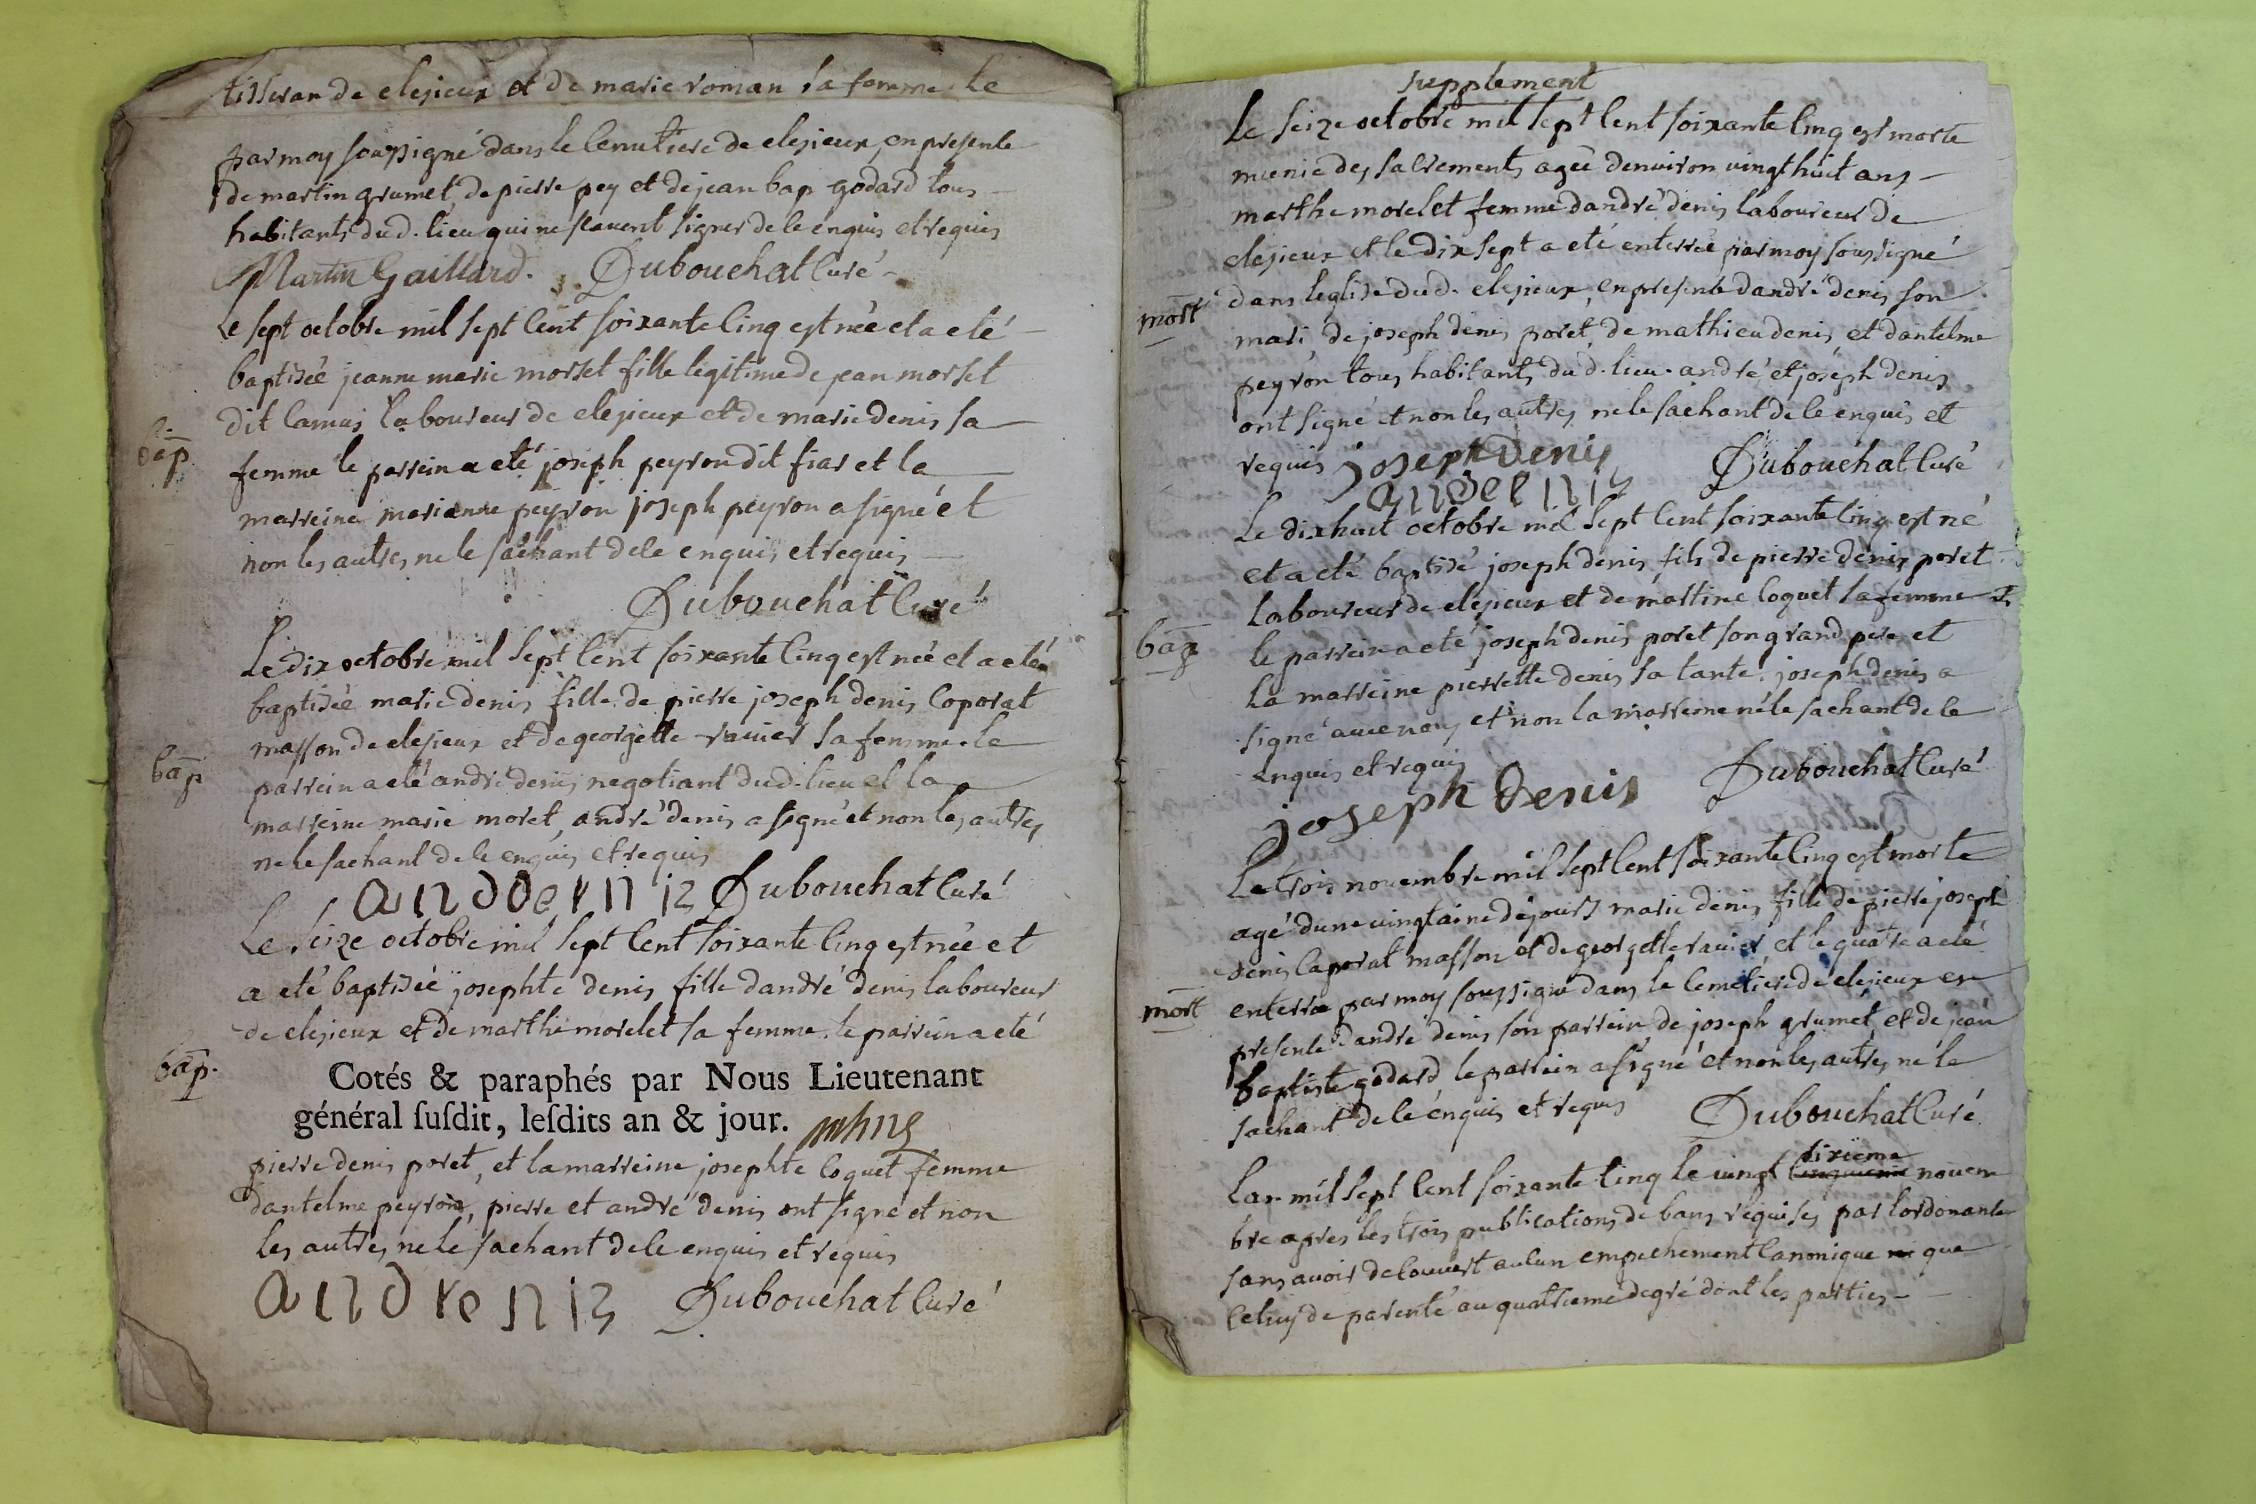 tisseran de clezieux et de marie roman sa femme. Le
par moy soussigné dans le Cemetiere de clezieux, en presente
de martin grumet, de pierre pey et de jean bap godard tous
habitants dud. lieu qui ne scauent signer de le enquis et requis
Martin Gaillard. Dubouchat Curé
Le sept octobre mil sept Cent soixante Cinq est née et a eté
baptisée jeanne marie morset fille legitime de jean morset
dit Camus laboureur de clezieux et de marie denis sa
bap
femme le parrein a eté joseph peyron dit fiar et la
marreine marianne peyron joseph peyron a signé et
non les autres ne le sachant de le enquis et requis
Dubouchat Curé
Le dix octobre mil sept Cent soixante Cinq est née et a eté
baptisée marie denis fille de pierre joseph denis Coporat
masson de clezieux et de georgette rauier sa femme. le
bap
parrein a eté andré denis negotiant dud. lieu et la
marreine marie moret, andré denis a signé et non les autres
ne le sachant de le enquis et requis
Dubouchat Curé
Le seize octobre mil sept Cent soixante Cinq est née et
a eté baptisée josephte denis fille dandré denis laboureur
de clezieux et de marthe morelet sa femme. le parrein a eté
bap.
Cotés & paraphés par Nous Lieutenant
général ſuſdit, leſdits an & jour.
pierre denis poret, et la marreine josephte Coquet femme
dantelme peyron, pierre et andré denis ont signé et non
les autres ne le sachant de le enquis et requis
andre nis Dubouchat Curé
supplement
Le seize octobre mil sept Cent soixante Cinq est morte
munie des sacrements agée denuiron vingt huit ans
marthe morelet femme dandré denis laboureur de
clezieux et le dix sept a eté enterrée par moy soussigné
dans leglise dud. clezieux, en presente dandré denis son
mort
mari de joseph denis poret, de mathieu denis et dantelme
peyron tous habitants dud. lieu. andré et joseph denis
ont signé et non les autres ne le sachant de le enquis et
requis joseph Denis Dubouchat Curé
Le dix huit octobre mil sept Cent soixante Cinq est né
et a eté baptisé joseph denis fils de pierre denis poret
laboureur de clezieux et de martine Coquet sa femme
bap
le parrein a eté joseph denis poret son grand pere et
la marreine pierrette denis sa tante. joseph denis a
signé auec nous et non la marreine ne le sachant de le
enquis et requis
joseph Denis Dubouchat Curé
Le trois nouembre mil sept Cent soixante Cinq est morte
agé dune vingtaine de jours marie denis fille de pierre joseph
denis Caporat masson et de georgette rauier et le quatre a eté
mort
enterré par moy soussigné dans le Cemetiere de clezieux en
presente dandré denis son parrein de joseph grumet et de jean
baptiste godard le parrein a signé et non les autres ne le
sachant de le enquis et requis Dubouchat Curé
sixieme
Lan mil sept Cent soixante Cinq le vingt cinquieme nouem
bre apres les trois publications de bans requises par lordonante
sans auoir decouuert aucun empechement Canonique que
Celuy de parenté au quatrieme degré dont les parties